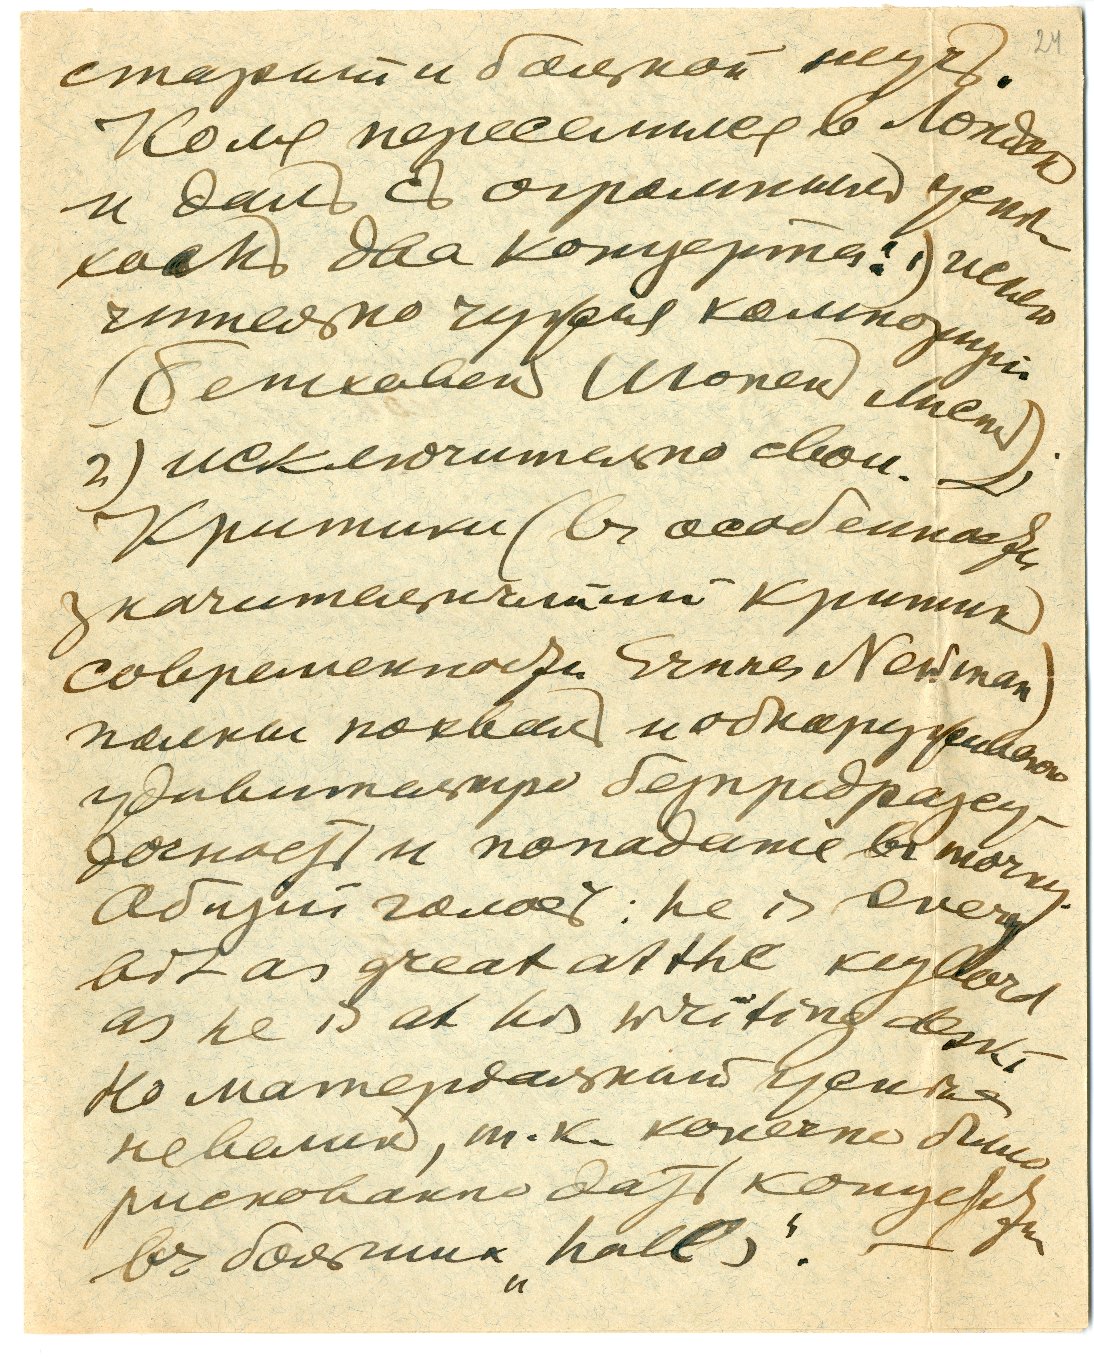 24
старый и больной неучъ.
Коля переселился в Лондон
и далъ съ огромнымъ успѣ-
хомъ два концерта: 1) исклю-
чительно чужия композиции
(Бетховенъ Шопенъ Листъ);
2) исключительно свои. —
Критики (въ особенности
значительнейший критик
современности Ernest Newman)
полны похвалъ и обнаруживаютъ
удивительную безпредразсу-
дочность и попадание въ точку.
Общий голосъ: he is every
bit as great at the keybord
as he is at his writing desk!
Но материальный успѣхъ
невеликъ, т.к. конечно было
рискованно дать концерты
въ большихъ „halls“. —